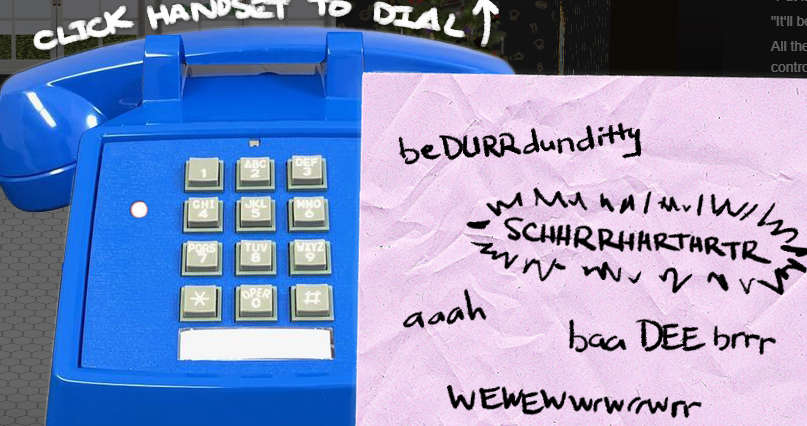 CLICK HANDSET TO DIAL
"It'll be
All the
contro
1
ABC 2
DEF 3
GHI 4
JKL 5
MNO 6
PQRS 7
TUV 8
WXYZ 9
*
OPER 0
#
beDURRdunditty
SCHHRRHHRTHRTR
aaah
baa DEE brrr
WEWEWwrwrrwrr